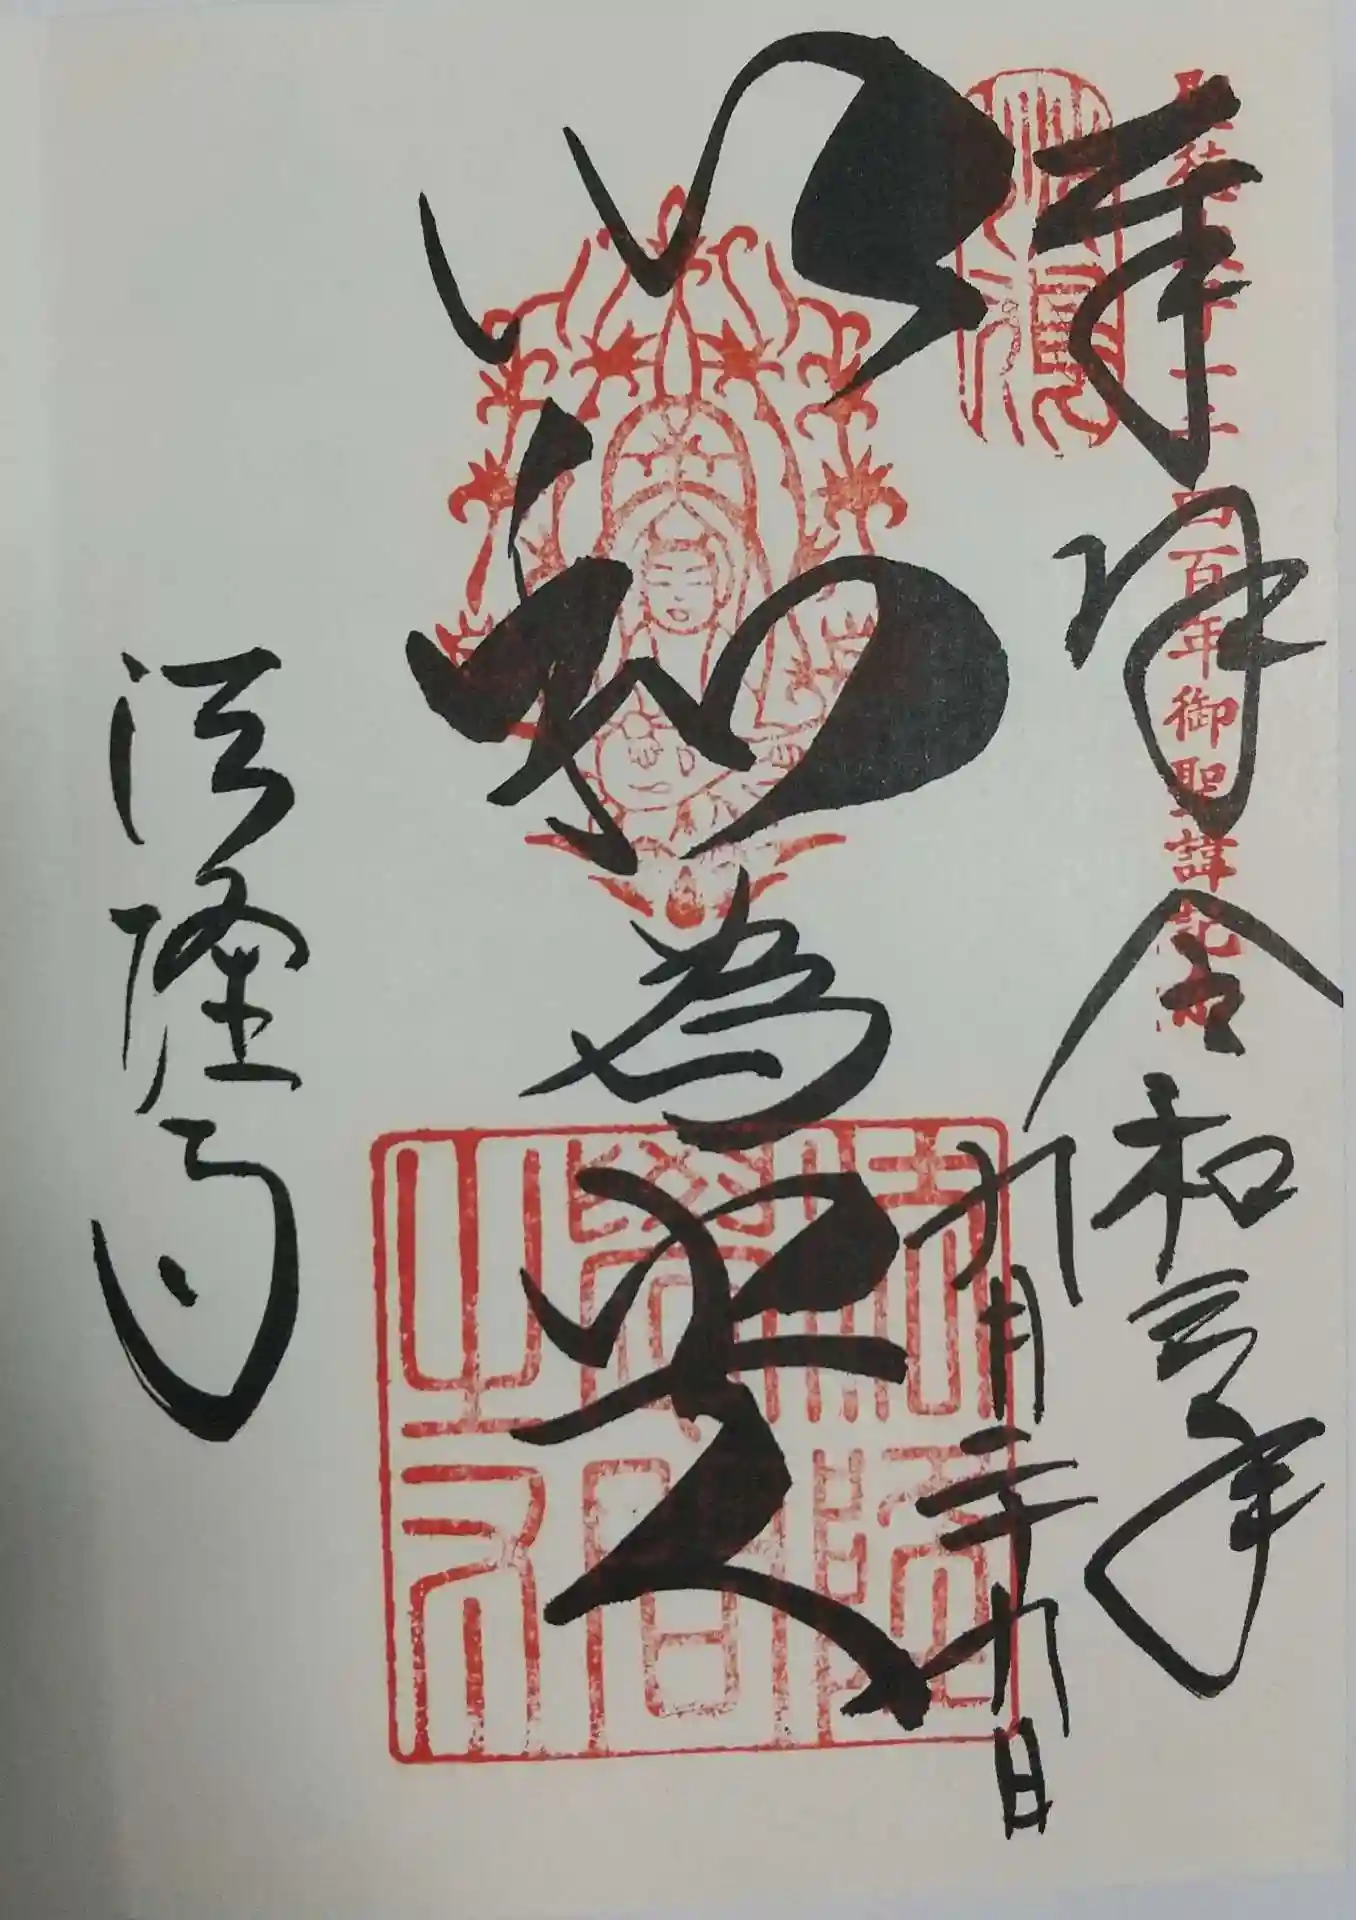 聖徳太子一千四百年御聖諱記念
奉拝
令和三年
九月二十九日
以和為貴
法隆寺